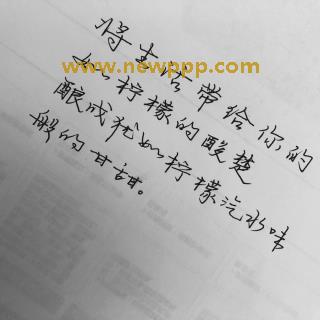 将生活带给你的
如柠檬的酸楚
酿成犹如柠檬汽水味
般的甘甜。
www.newppp.com